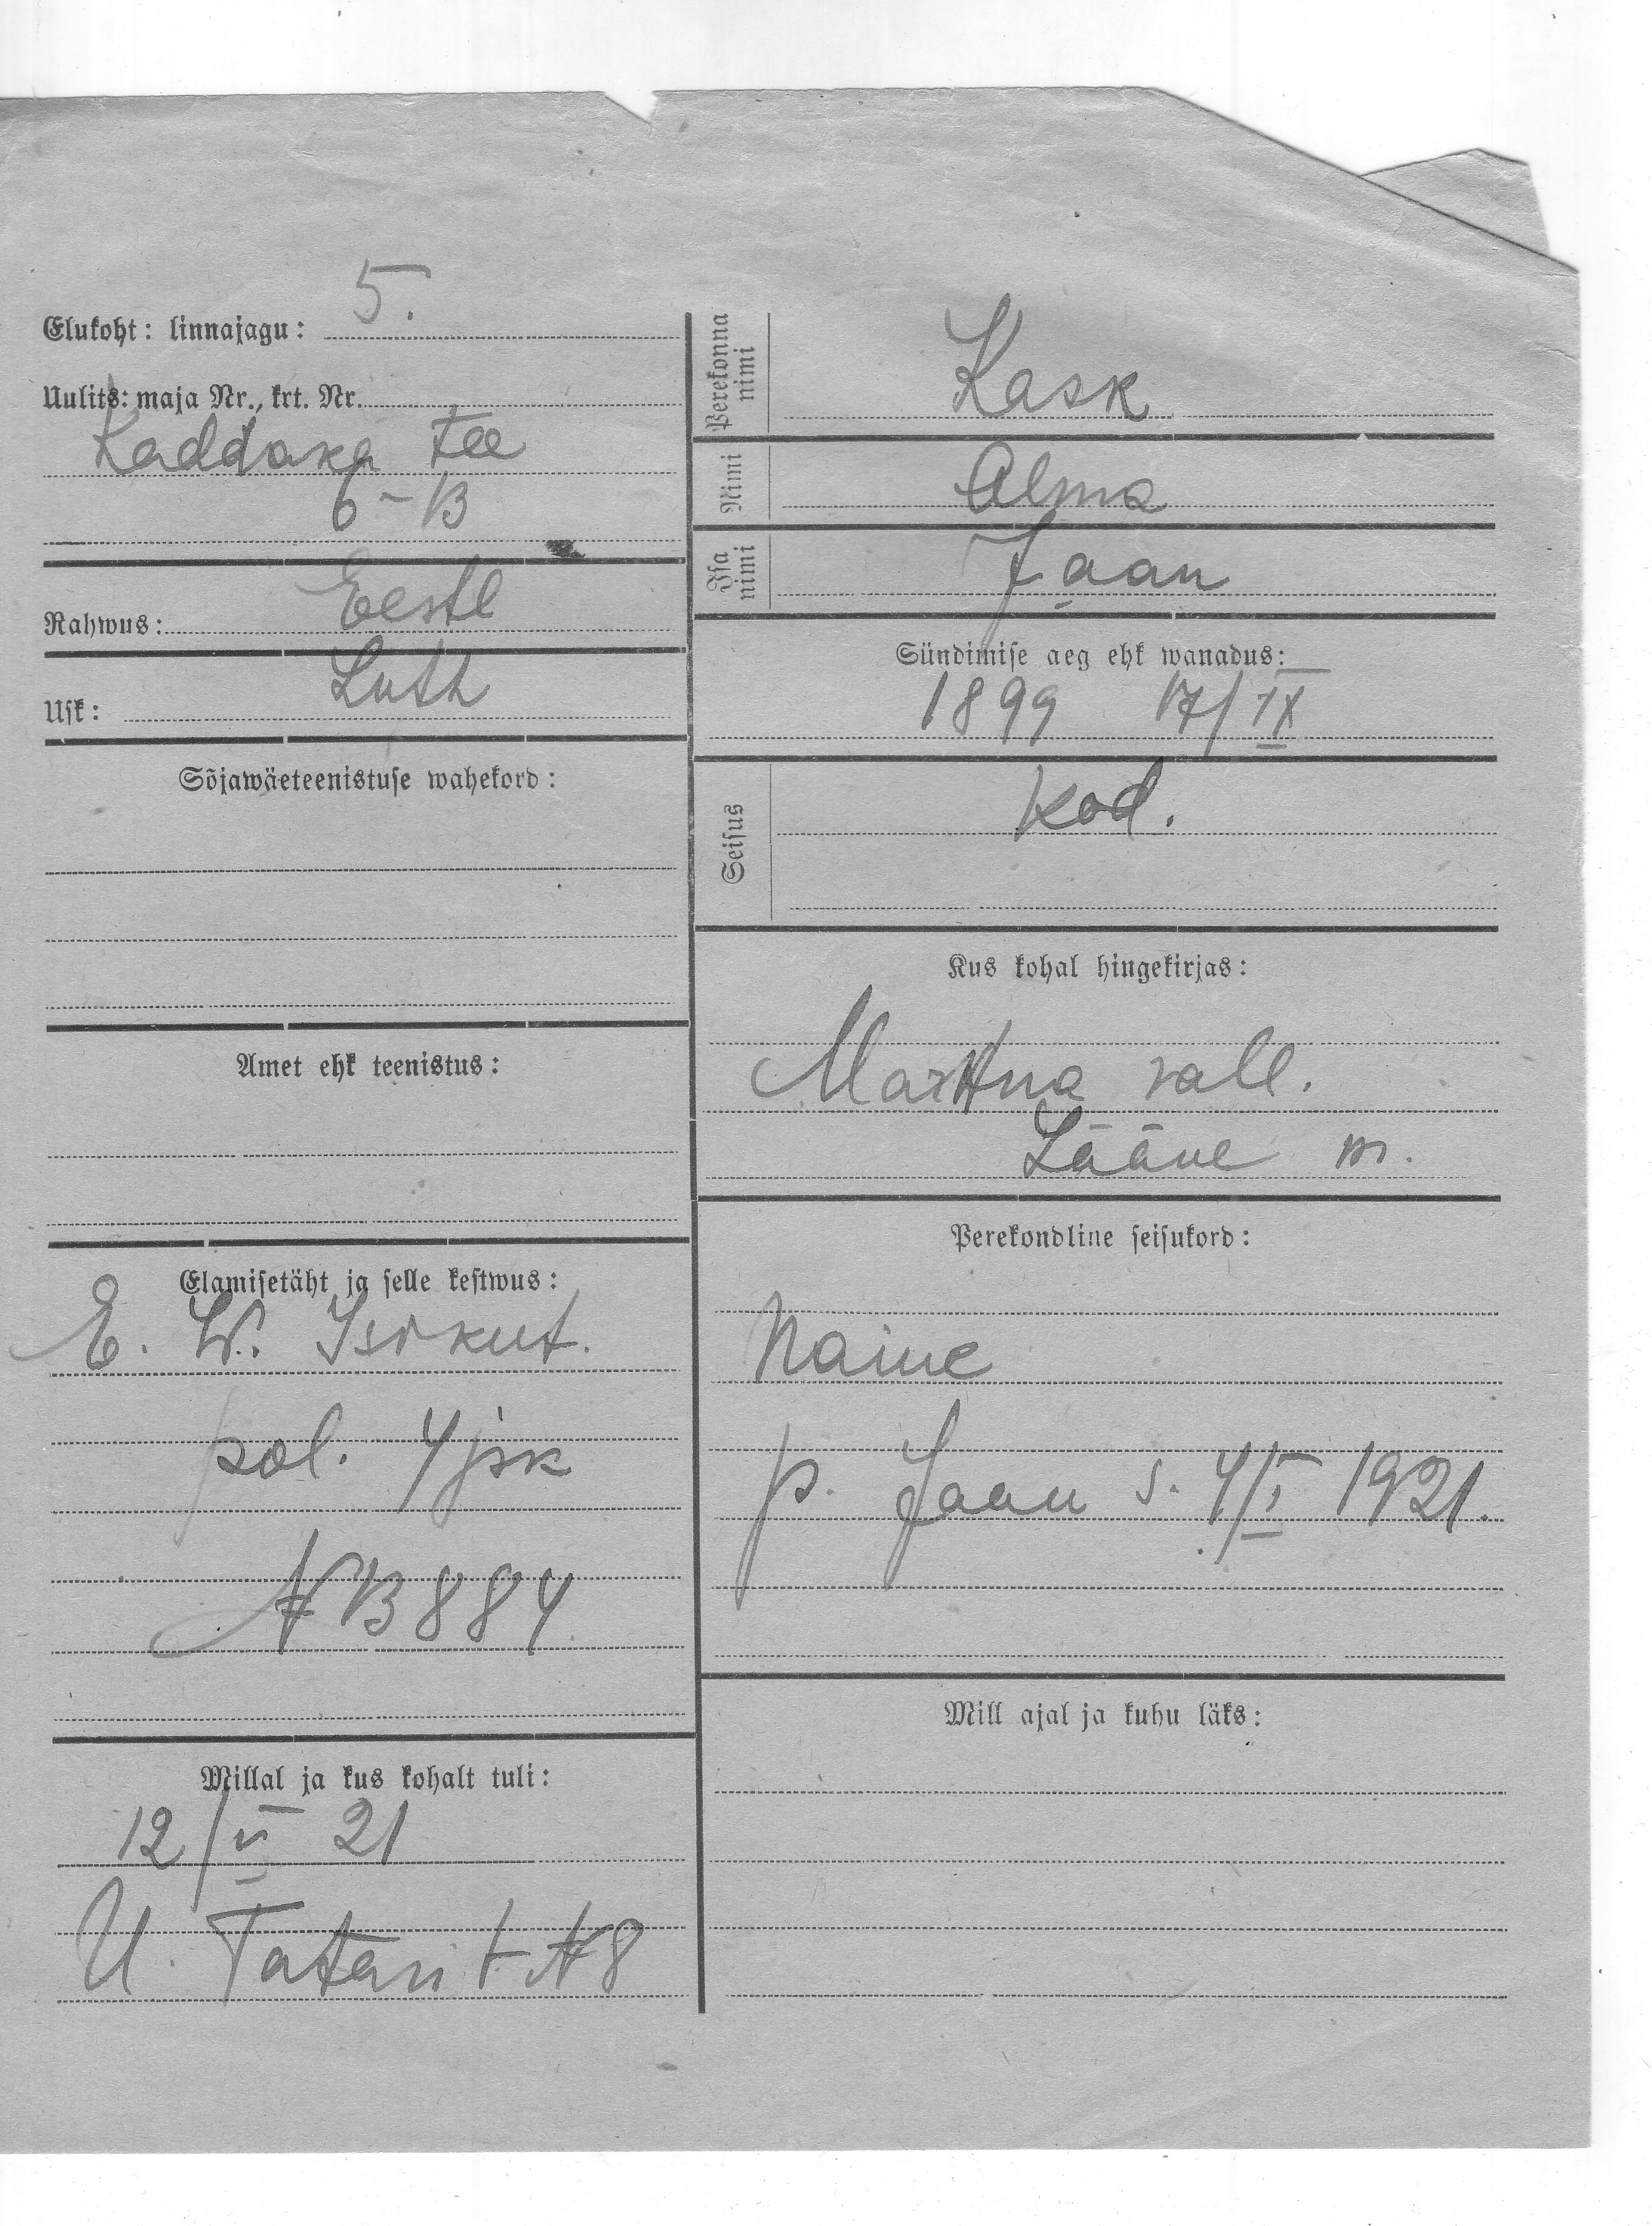 Elukoht: linnajagu: 5.
Uulits: maja Nr., krt. Nr.
Kaddaka tee
6-13
Rahwus: Eestl
Usk: Luth
Sõjawäeteenistuse wahekord:
Amet ehk teenistus:
Elamisetäht ja selle kestwus:
E. W. Isikut.
pol. 4 jsk
№ 13884
Millal ja kus kohalt tuli:
12/V 21
U. Tatari t № 8
Perekonna nimi
Kask
Nimi
Alma
Isa nimi
Jaan
Sündimise aeg ehk wanadus:
1899 17/IX
Seisus
Kod.
Kus kohal hingekirjas:
Martna vall.
Lääne m.
Perekondline seisukord:
Naine
p. Jaan s. 4/I 1921.
Mill ajal ja kuhu läks: